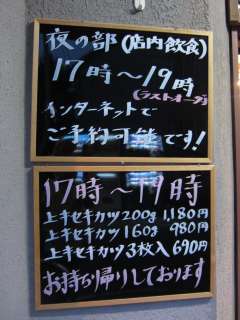 夜の部(店内飲食)
17時〜19時
(ラストオーダー)
インターネットで
ご予約可能です!
17時〜19時
上キセキカツ200g 1,180円
上キセキカツ160g 980円
上キセキカツ3枚入 690円
お持ち帰りしております